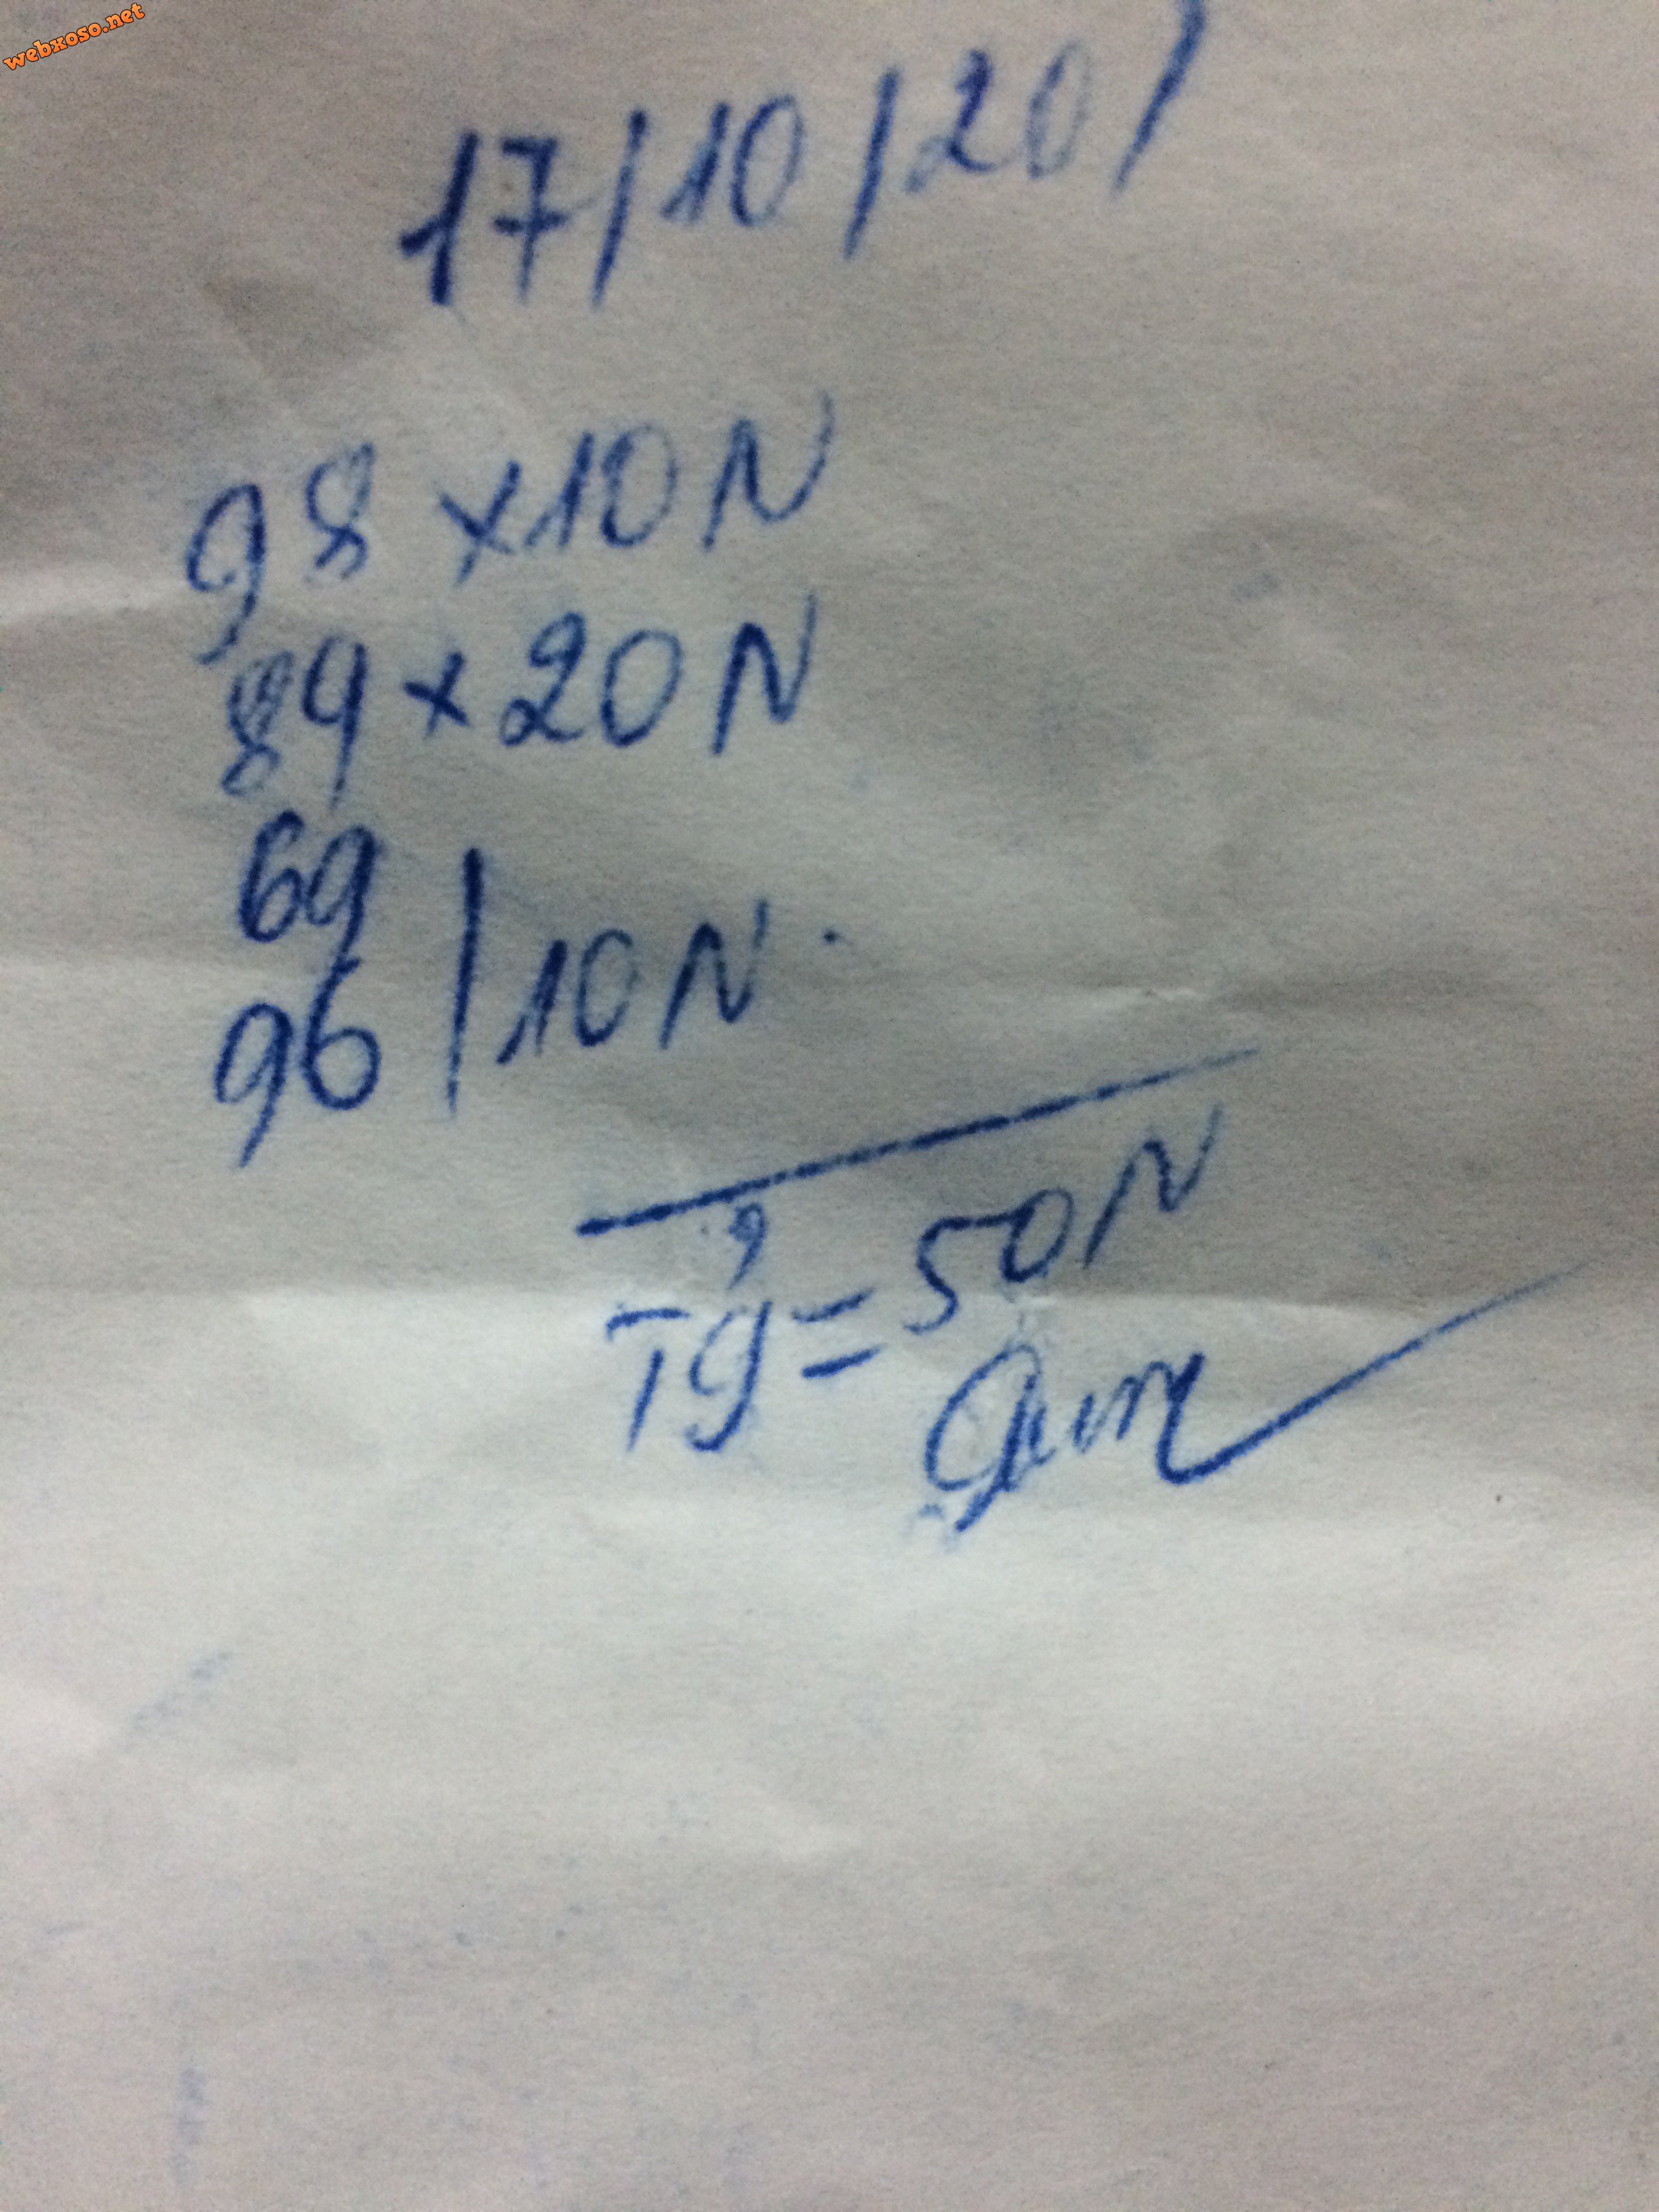 webxoso.net
17/10/201
98 x 10N
89 x 20N
69
96 | 10N.
Tg = 50N